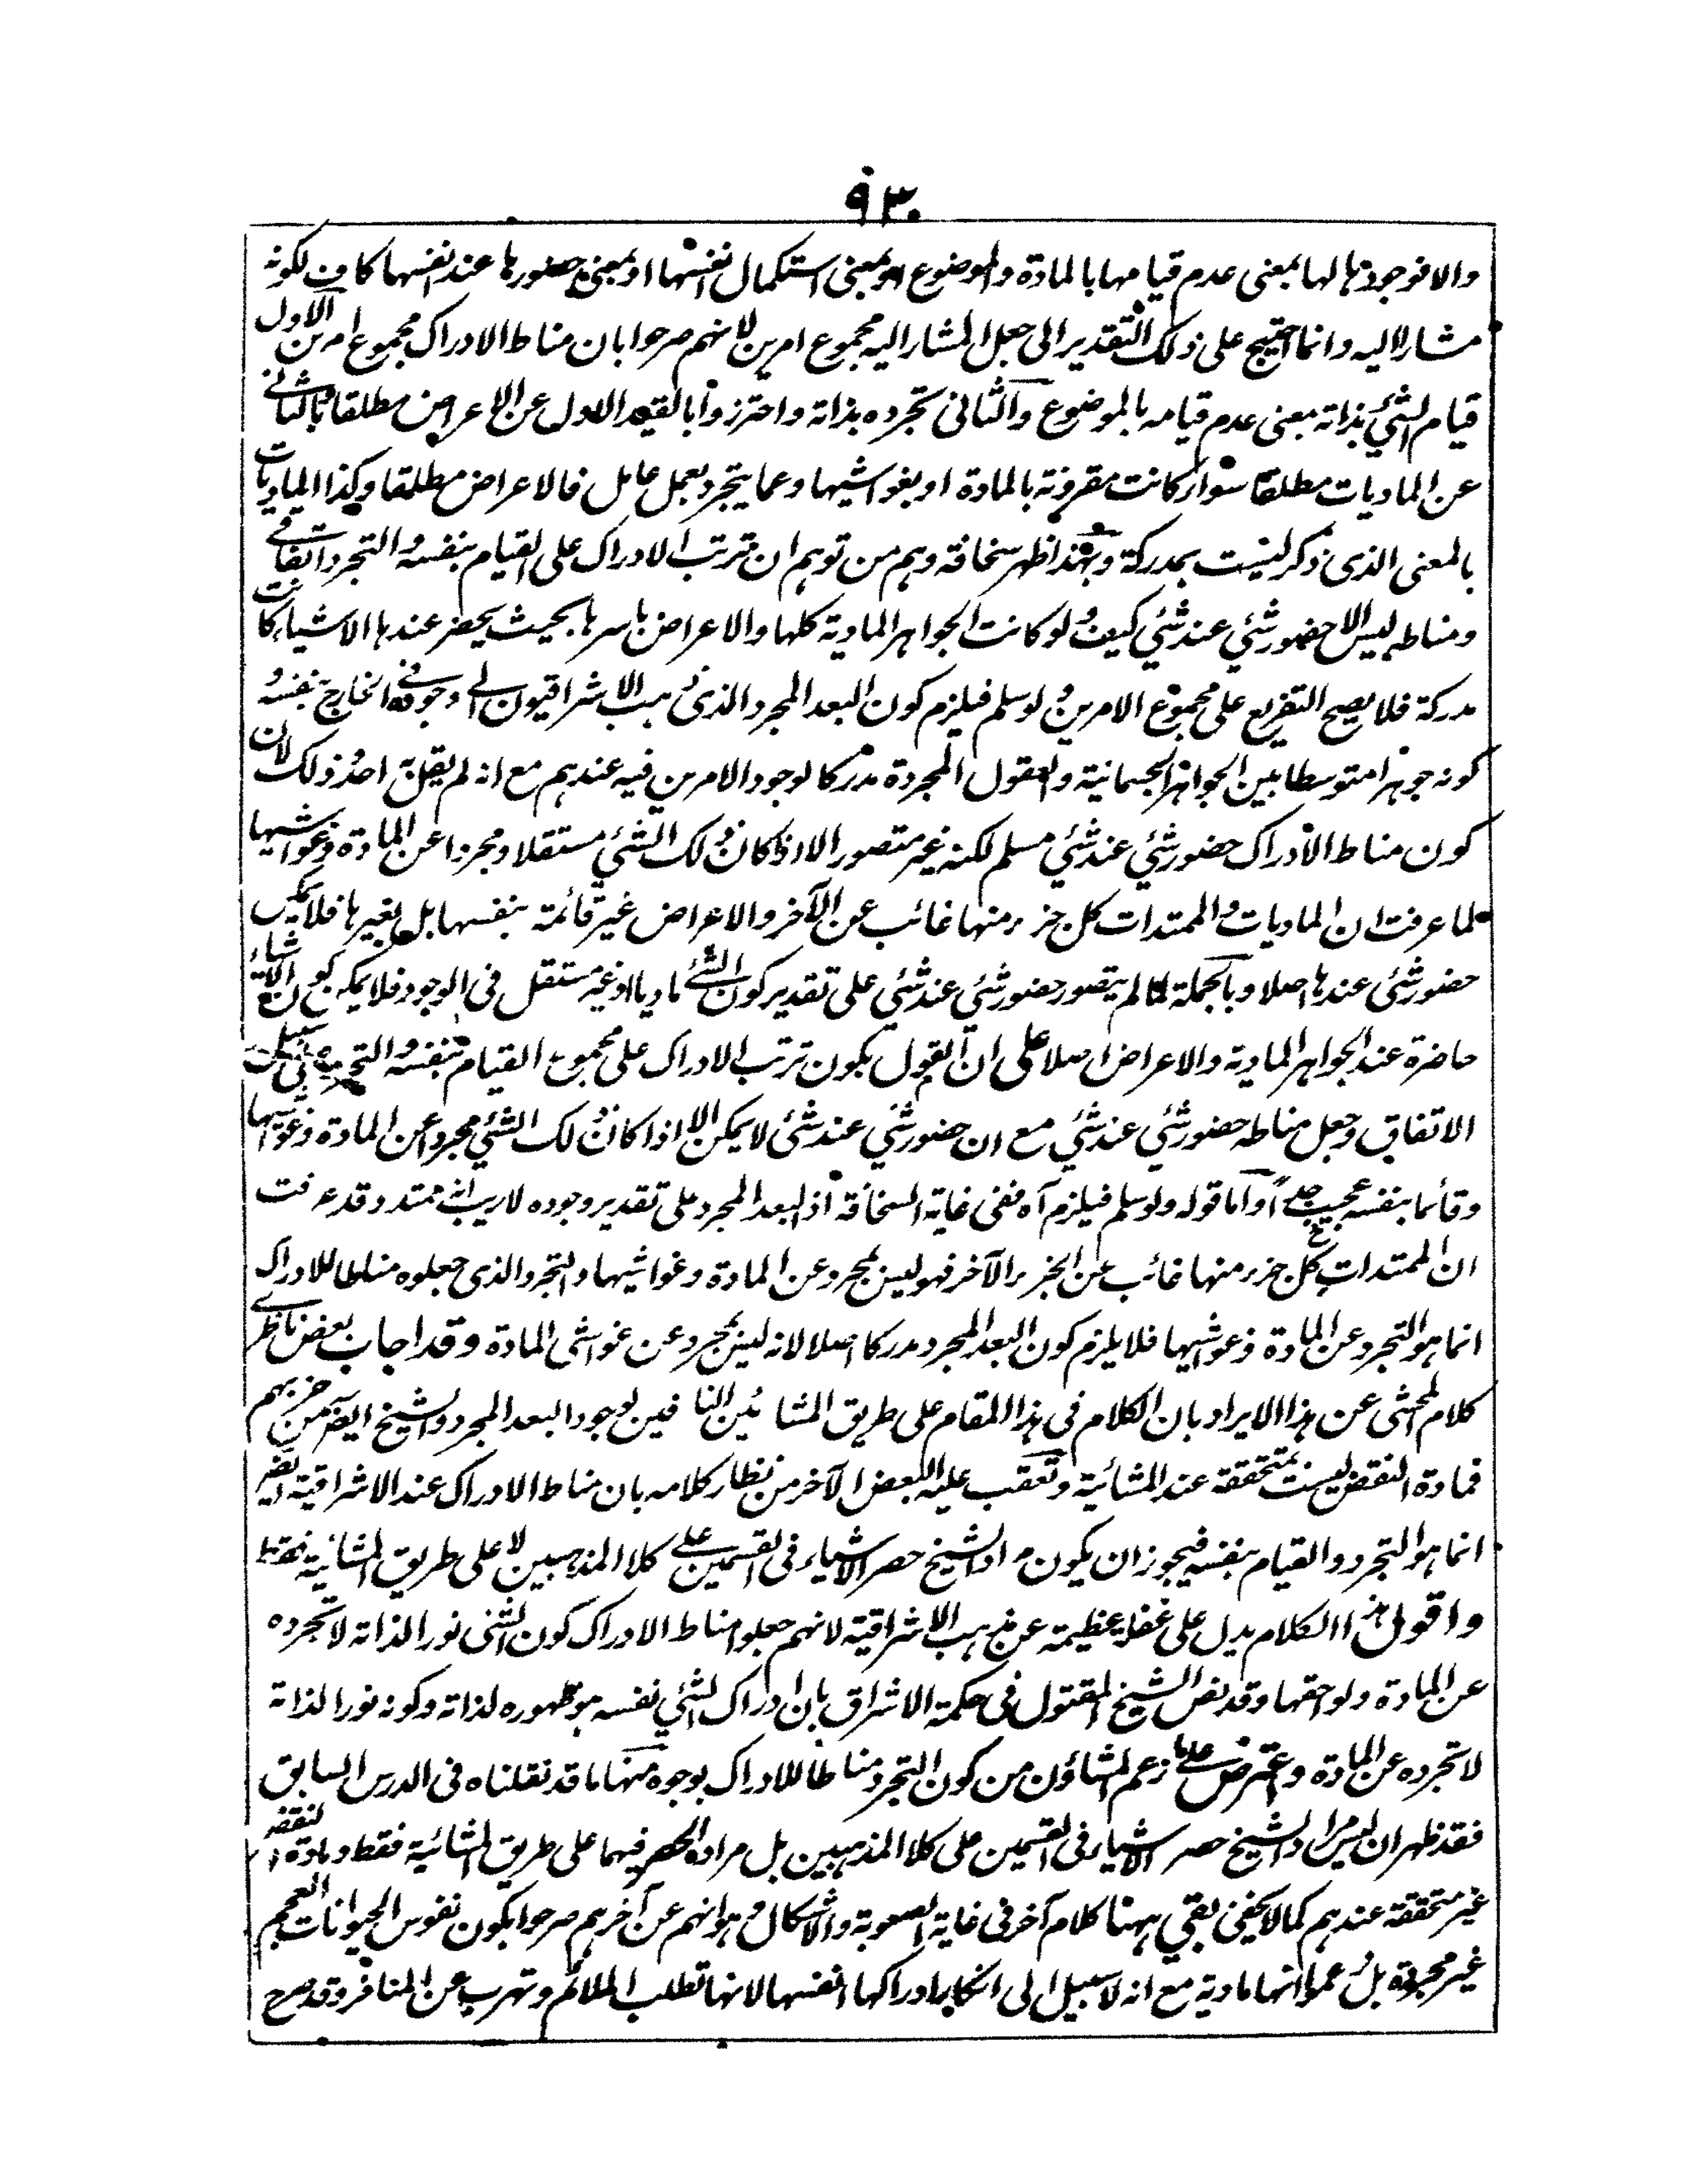 ٩٣
والا فوجودها لها بمعنى عدم قيامها بالمادة والموضوع او بمعنى استكمال انفسها او بمعنى حضورها عند انفسها كاف لكونه
مشارا اليه وانما احتيج على ذلك التقدير الى جعل المشار اليه مجموع امرين لانهم صرحوا بان مناط الادراك مجموع امرين الاول
قيام الشئ بذاته بمعنى عدم قيامه بالموضوع والثانى تجرده بذاته واحترزوا بالقيد الاول عن الاعراض مطلقا وبالثانى
عن الماديات مطلقا سواء كانت مقرونة بالمادة او بغواشيها وعما يتجرد بعمل عامل فالاعراض مطلقا وكذا الماديات
بالمعنى الذى ذكر ليست بمدركة وبهذا ظهر سخافة وهم من توهم ان ترتب الادراك على القيام بنفسه والتجرد اتفاقى
ومناطه ليس الا حضور شئ عند شئ كيف ولو كانت الجواهر المادية كلها والاعراض باسرها بحيث يحضر عندها الاشياء كانت
مدركة فلا يصح التفريع على مجموع الامرين ولو سلم فيلزم كون البعد المجرد الذى ذهب الاشراقيون الى وجوده فى الخارج بنفسه و
كونه جوهرا متوسطا بين الجواهر الجسمانية والعقول المجردة مدركا لوجود الامرين فيه عندهم مع انه لم يقل به احد وذلك لان
كون مناط الادراك حضور شئ عند شئ مسلم لكنه غير متصور الا اذا كان ذلك الشئ مستقلا ومجردا عن المادة وغواشيها
لما عرفت ان الماديات والممتدات كل جزء منها غائب عن الآخر والاعراض غير قائمة بنفسها بل بغيرها فلا يمكن
حضور شئ عندها اصلا وبالجملة لما لم يتصور حضور شئ عند شئ على تقدير كون الشئ ماديا او غير مستقل فى الوجود فلا يمكن كون الاشياء
حاضرة عند الجواهر المادية والاعراض اصلا على ان القول بكون ترتب الادراك على مجموع القيام بنفسه والتجرد على سبيل
الاتفاق وجعل مناطه حضور شئ عند شئ مع ان حضور شئ عند شئ لا يمكن الا اذا كان ذلك الشئ مجردا عن المادة وغواشيها
وقائما بنفسه عجيب جدا واما قوله ولو سلم فيلزم آه ففى غاية السخافة اذ البعد المجرد على تقدير وجوده لا ريب انه ممتد وقد عرفت
ان الممتدات كل جزء منها غائب عن الجزء الآخر فهو ليس بمجرد عن المادة وغواشيها والتجرد الذى جعلوه مناطا للادراك
انما هو التجرد عن المادة وغواشيها فلا يلزم كون البعد المجرد مدركا اصلا لانه ليس بمجرد عن غواشى المادة وقد اجاب بعض ناظرى
كلام المحشى عن هذا الايراد بان الكلام فى هذا المقام على طريق المشائين النافين لوجود البعد المجرد والشيخ ايضا من حزبهم
فمادة النقض ليست بمتحققة عند المشائية وتعقب عليه البعض الآخر من نظار كلامه بان مناط الادراك عند الاشراقية ايضا
انما هو التجرد والقيام بنفسه فيجوز ان يكون مراد الشيخ حصر الاشياء فى القسمين على كلا المذهبين لا على طريق المشائية فقط
واقول هذا الكلام يدل على غفلة عظيمة عن مذهب الاشراقية لانهم جعلوا مناط الادراك كون الشئ نورا لذاته لا تجرده
عن المادة ولواحقها وقد نص الشيخ المقتول فى حكمة الاشراق بان ادراك الشئ نفسه هو ظهوره لذاته وكونه نورا لذاته
لا تجرده عن المادة واعترض على ما زعم المشاؤن من كون التجرد مناطا للادراك بوجوه منها ما قد نقلناه فى الدرس السابق
فقد ظهر ان ليس مراد الشيخ حصر الاشياء فى القسمين على كلا المذهبين بل مراده الحصر فيهما على طريق المشائية فقط ومادة النقض
غير متحققة عندهم كما لا يخفى بقى ههنا كلام آخر فى غاية الصعوبة والاشكال وهو انهم عن آخرهم صرحوا بكون نفوس الحيوانات العجم
غير مجردة بل زعموا انها مادية مع انه لا سبيل الى انكار ادراكها انفسها لانها تطلب الملائم وتهرب عن المنافر وقد صرح